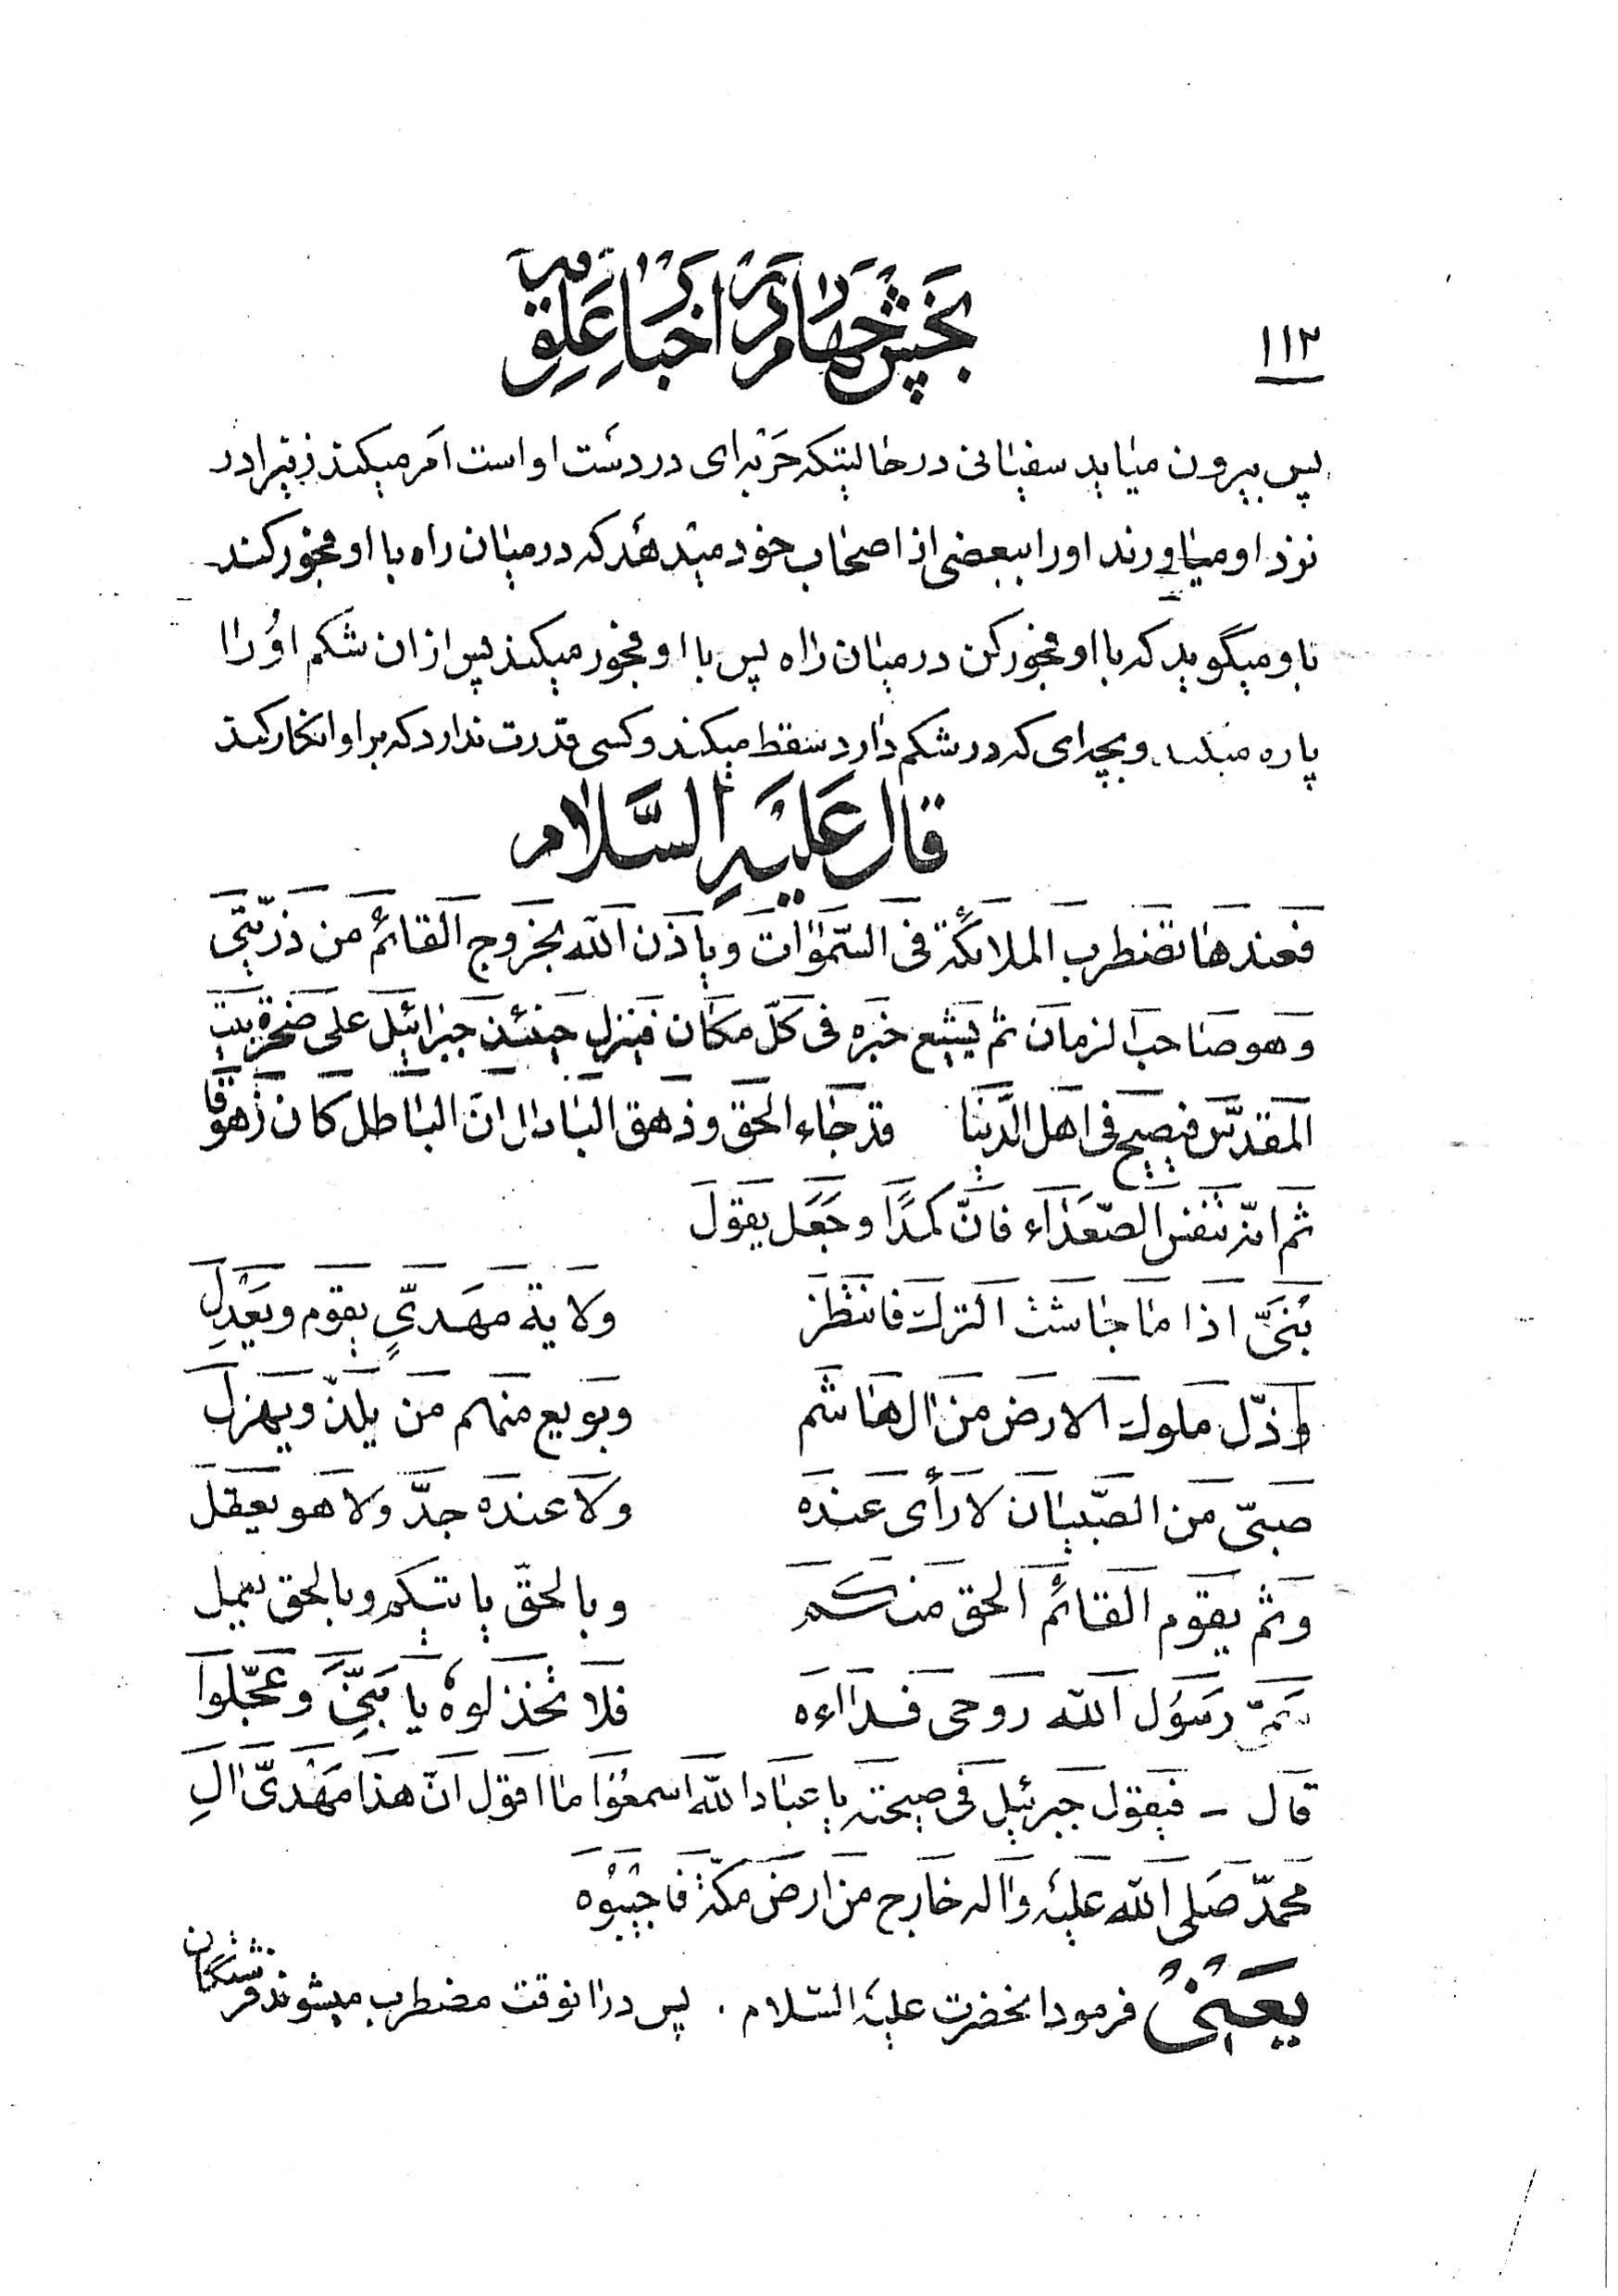 ۱۱۲
بخش چهارم در اخبار علویه
پس بیرون میاید سفیانی در حالیتکه حربه‌ای در دست او است امر میکند زنیرا در
نزد او میاورند او را ببعضی از اصحاب خود میدهد که در میان راه با او فجور کند
باو میگوید که با او فجور کن در میان راه پس با او فجور میکند پس از ان شکم او را
پاره میکند وبچه‌ای که در شکم دارد سقط میکند و کسی قدرت ندارد که بر او انکار کند
قال علیه السَّلام
فعندها تضطرب الملائکة فی السّموات ویأذن الله بخروج القائم من ذرّیّتی
وهو صاحب الزمان ثم یشیع خبره فی کلّ مکان فینزل حینئذ جبرائیل علی صخرة بیت
المقدّس فیصیح فی اهل الدّنیا قد جاء الحق وذهق الباطل انّ الباطل کان زهوقا
ثم انّه تنفس الصّعداء فانّ کمدًا وجعل یقول
بُنیَّ اذا ما جاشت الترک فانتظر ولایة مهدیٍّ یقوم ویعدل
وذلّ ملوک الارض من ال هاشم وبویع منهم من یلذّ ویهزل
صبیّ من الصّبیان لا رأی عنده ولا عنده جدّ ولا هو یعقل
وثم یقوم القائم الحق منکم وبالحقّ یاتیکم وبالحق یعمل
سمیّ رسول الله روحی فداءه فلا تخذلوه یا بَنیَّ وعجّلوا
قال – فیقول جبرئیل فی صیحته یا عباد الله اسمعوا ما اقول انّ هذا مهدیّ ال
محمّد صلی الله علیه واله خارج من ارض مکّة فاجیبوه
یعنی فرمود انحضرت علیه السّلام . پس در انوقت مضطرب میشوند فرشتگان